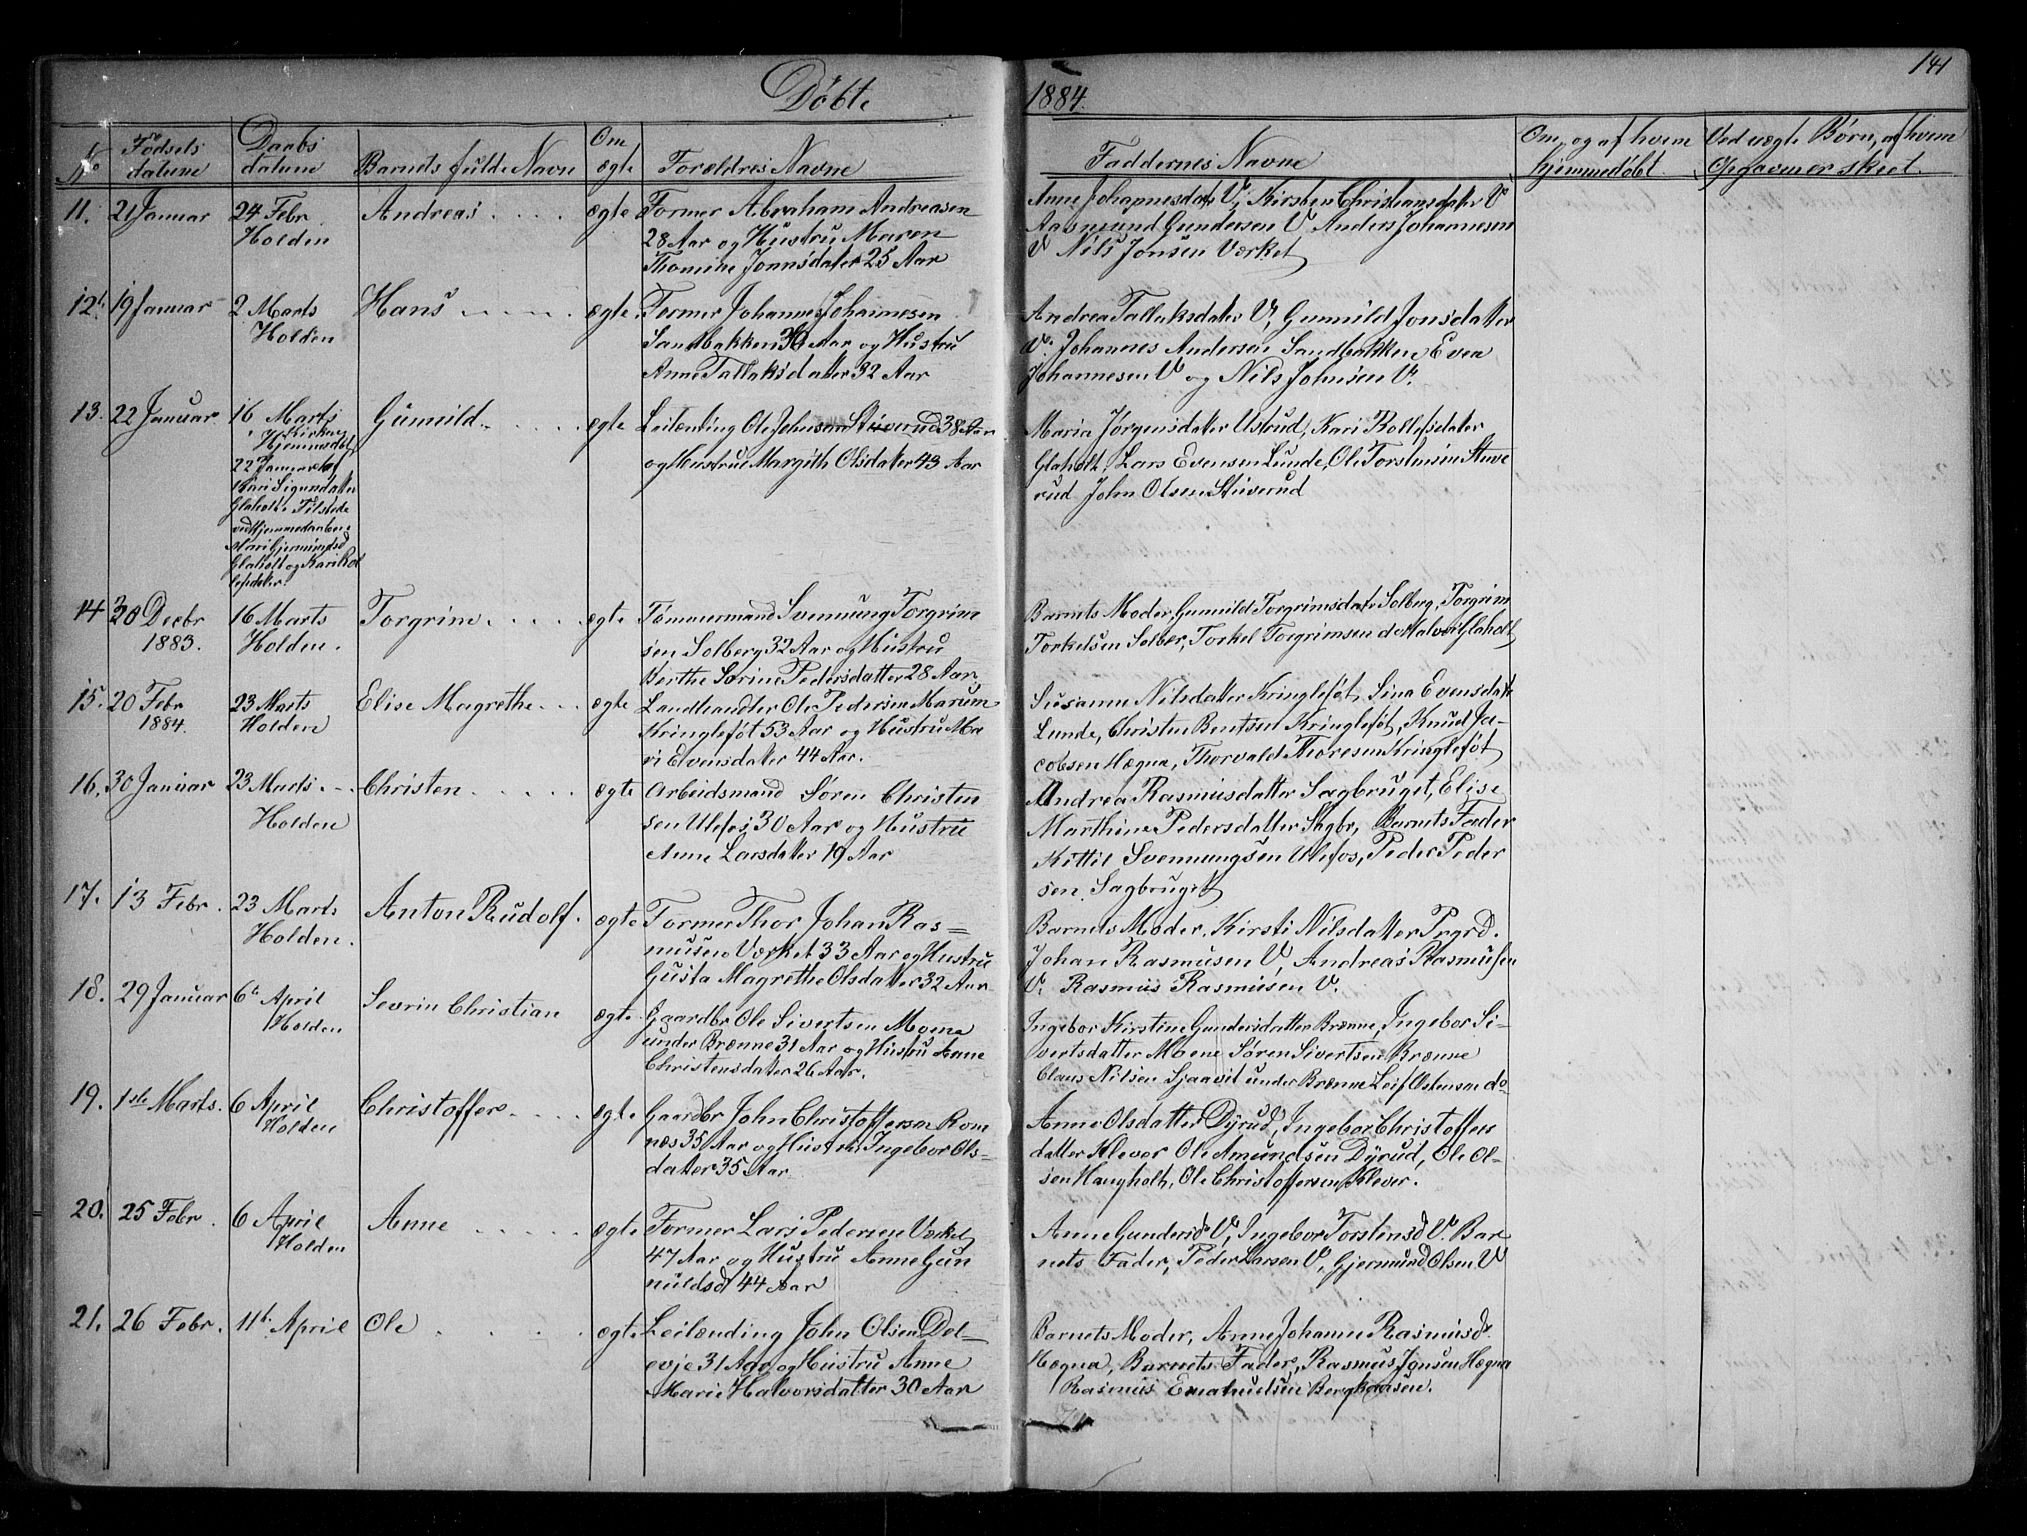 141
Døbte
1884.
No
Fødsels datum
Daabs datum
Barnets fulde Navn
Om ægte
Forældres Navne
Faddernes Navne
Om, og af hvem hjemmedøbt.
Ved uægte Børn, af hvem Opgaven er skeet.
11. 21 Januar
24 Febr
Holden
Andreas
ægte
Former Abraham Andreasen
28 Aar og Hustru Maren
Thomine Jonnsdater 25 Aar
Anne Johannesdatr V, Kirsten Christiansdater V
Aasmund Gundersen V Anders Johannesen
V Nils Jonsen Værket
12. 19 Januar
2 Marts
Holden
Hans
ægte
Former Johannes Johannesen
Sandbakken 30 Aar og Hustru
Anne Tallaksdatter 32 Aar
Andrea Tallaksdater V, Gunnild Jonsdatter
V. Johannes Andersen Sandbakken Even
Johannesen V og Nils Johnsen V.
13. 22 Januar
16 Marts
i Kirken
Hjemmedøbt
22 Januar af
Kari Sigurdater
Glaholt. Tilstede
ved Hjemmedaaben:
Mari Gjermundsd
Glaholt og Kari Rol
lefsdater.
Gunnild
ægte
Leilænding Ole Johnsen Stuverud 38 Aar
og Hustru Margith Olsdater 43 Aar
Maria Jørgensdater Ustrud, Kari Rollefsdater
Glaholt, Lars Evensen Lunde, Ole Torstensen Stuve
rud John Olsen Stuverud
14 30 Decbr
1883.
16 Marts
Holden.
Torgrim
ægte
Tømmermand Svennung Torgrim
sen Solberg 32 Aar og Hustru
Berthe Sørine Pedersdatter 28 Aar
Barnets Moder, Gunnild Torgrimsdatr Solberg, Torgrim
Torkelsen Solber, Torkel Torgrimsen do Halvor Glaholt
15. 20 Febr
1884.
23 Marts
Holden
Elise Magrethe
ægte
Landhandler Ole Pedersen Marum
Kringlefót 53 Aar og Hustru Ma
ri Evensdater 44 Aar.
Susanne Nilsdatter Kringlefót, Lina Evensdatr
Lunde, Christen Bentsen Kringlefót, Knud Ja-
cobsen Hægna, Thorvald Thoresen Kringlefót
16. 30 Januar
23 Marts
Holden
Christen
ægte
Arbeidsmand Søren Christen
sen Ulefos 30 Aar og Hustru
Anne Larsdatter 19 Aar
Andrea Rasmusdatter Sagbruget, Elise
Marthine Pedersdatter Sagbr, Barnets Fader
Kittil Svennungsen Ulefos, Peder Peder
sen Sagbruget
17. 13 Febr.
23 Marts
Holden.
Anton Rudolf.
ægte
Former Thor Johan Ras=
musen Værket 33 Aar og Hustru
Gusta Magrethe Olsdatter 32 Aar
Barnets Moder, Kirsti Nilsdatter Prgrd.
Johan Rasmusen V, Andreas Rasmusen
V. Rasmus Rasmusen V.
18. 29 Januar
6te April
Holden
Sevrin Christian
ægte
Gaardbr Ole Sivertsen Moene
under Brænne 31 Aar og Hustru Anne
Christensdater 26 Aar.
Ingebor Kirstine Gundersdatter Brænne, Ingebor Si-
vertsdatter Moene Søren Sivertsen Brænne
Claus Nilsen Sjaavit under Brænne Leif Ostensen do
19. 1ste Marts.
6 April
Holden
Christoffer
ægte
Gaardbr John Christoffersen Rom
næs 35 Aar og Hustru Ingebor Ols-
dater 35 Aar
Anne Olsdatter Dyrud, Ingebor Christoffers
datter Klever Ole Amundsen Dyrud, Ole Ol-
sen Haugholt, Ole Christoffersen Klever.
20. 25 Febr.
6 April
Holden
Anne
ægte
Former Lars Pedersen Værket
47 Aar og Hustru Anne Gun
nuldsd 44 Aar
Anne Gundersd V, Ingebor Torstensd V. Bar
nets Fader, Peder Larsen V, Gjermund Olsen V
21. 26 Febr.
11te April
Ole
ægte
Leilænding John Olsen Dol-
evje 31 Aar og Hustru Anne
Marie Halvorsdatter 30 Aar
Barnets Moder, Anne Johanne Rasmusd.
Hægna, Barnets Fader, Rasmus Jonsen Hægna
Rasmus Emanuelsen Bergkaasen.